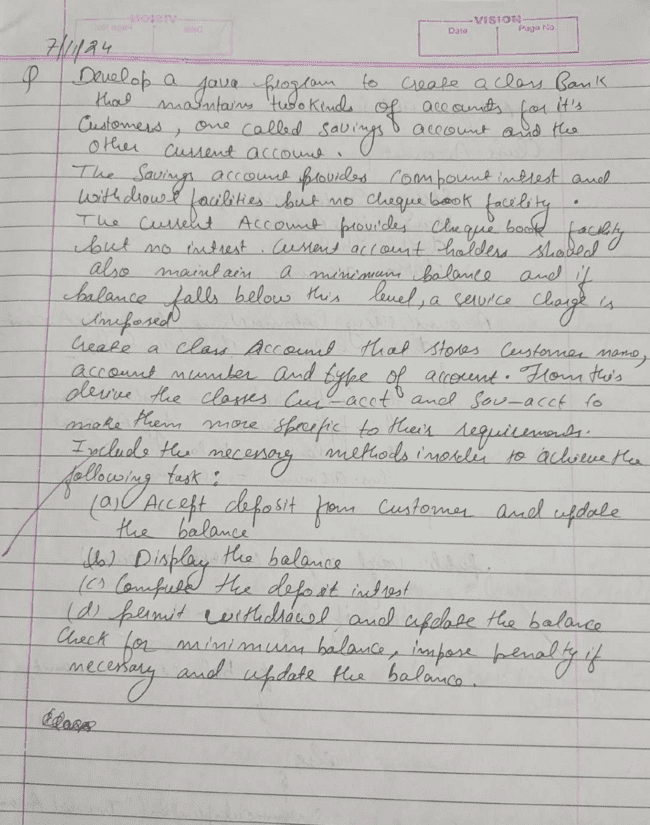 VISION
Date
Page No.
7/1/24
Q Develop a java program to create a class Bank
that maintains two kinds of accounts for it's
Customers, one called savings account and the
other current account.
The Savings account provides compount intrest and
withdrawl facilities but no cheque book facility.
The Current Account provides cheque book facility
but no intrest. Current account holders should
also maintain a minimum balance and if
balance falls below this level, a service charge is
imposed
Create a class Account that stores customer name,
account number and type of account. From this
derive the classes Cur-acct and Sav-acct to
make them more specific to their requirements.
Include the necessary methods inorder to achieve the
following task:
(a) Accept deposit from customer and update
the balance
(b) Display the balance
(c) Compute the deposit intrest
(d) permit withdrawel and update the balance
Check for minimum balance, impose penalty if
necessary and update the balance.